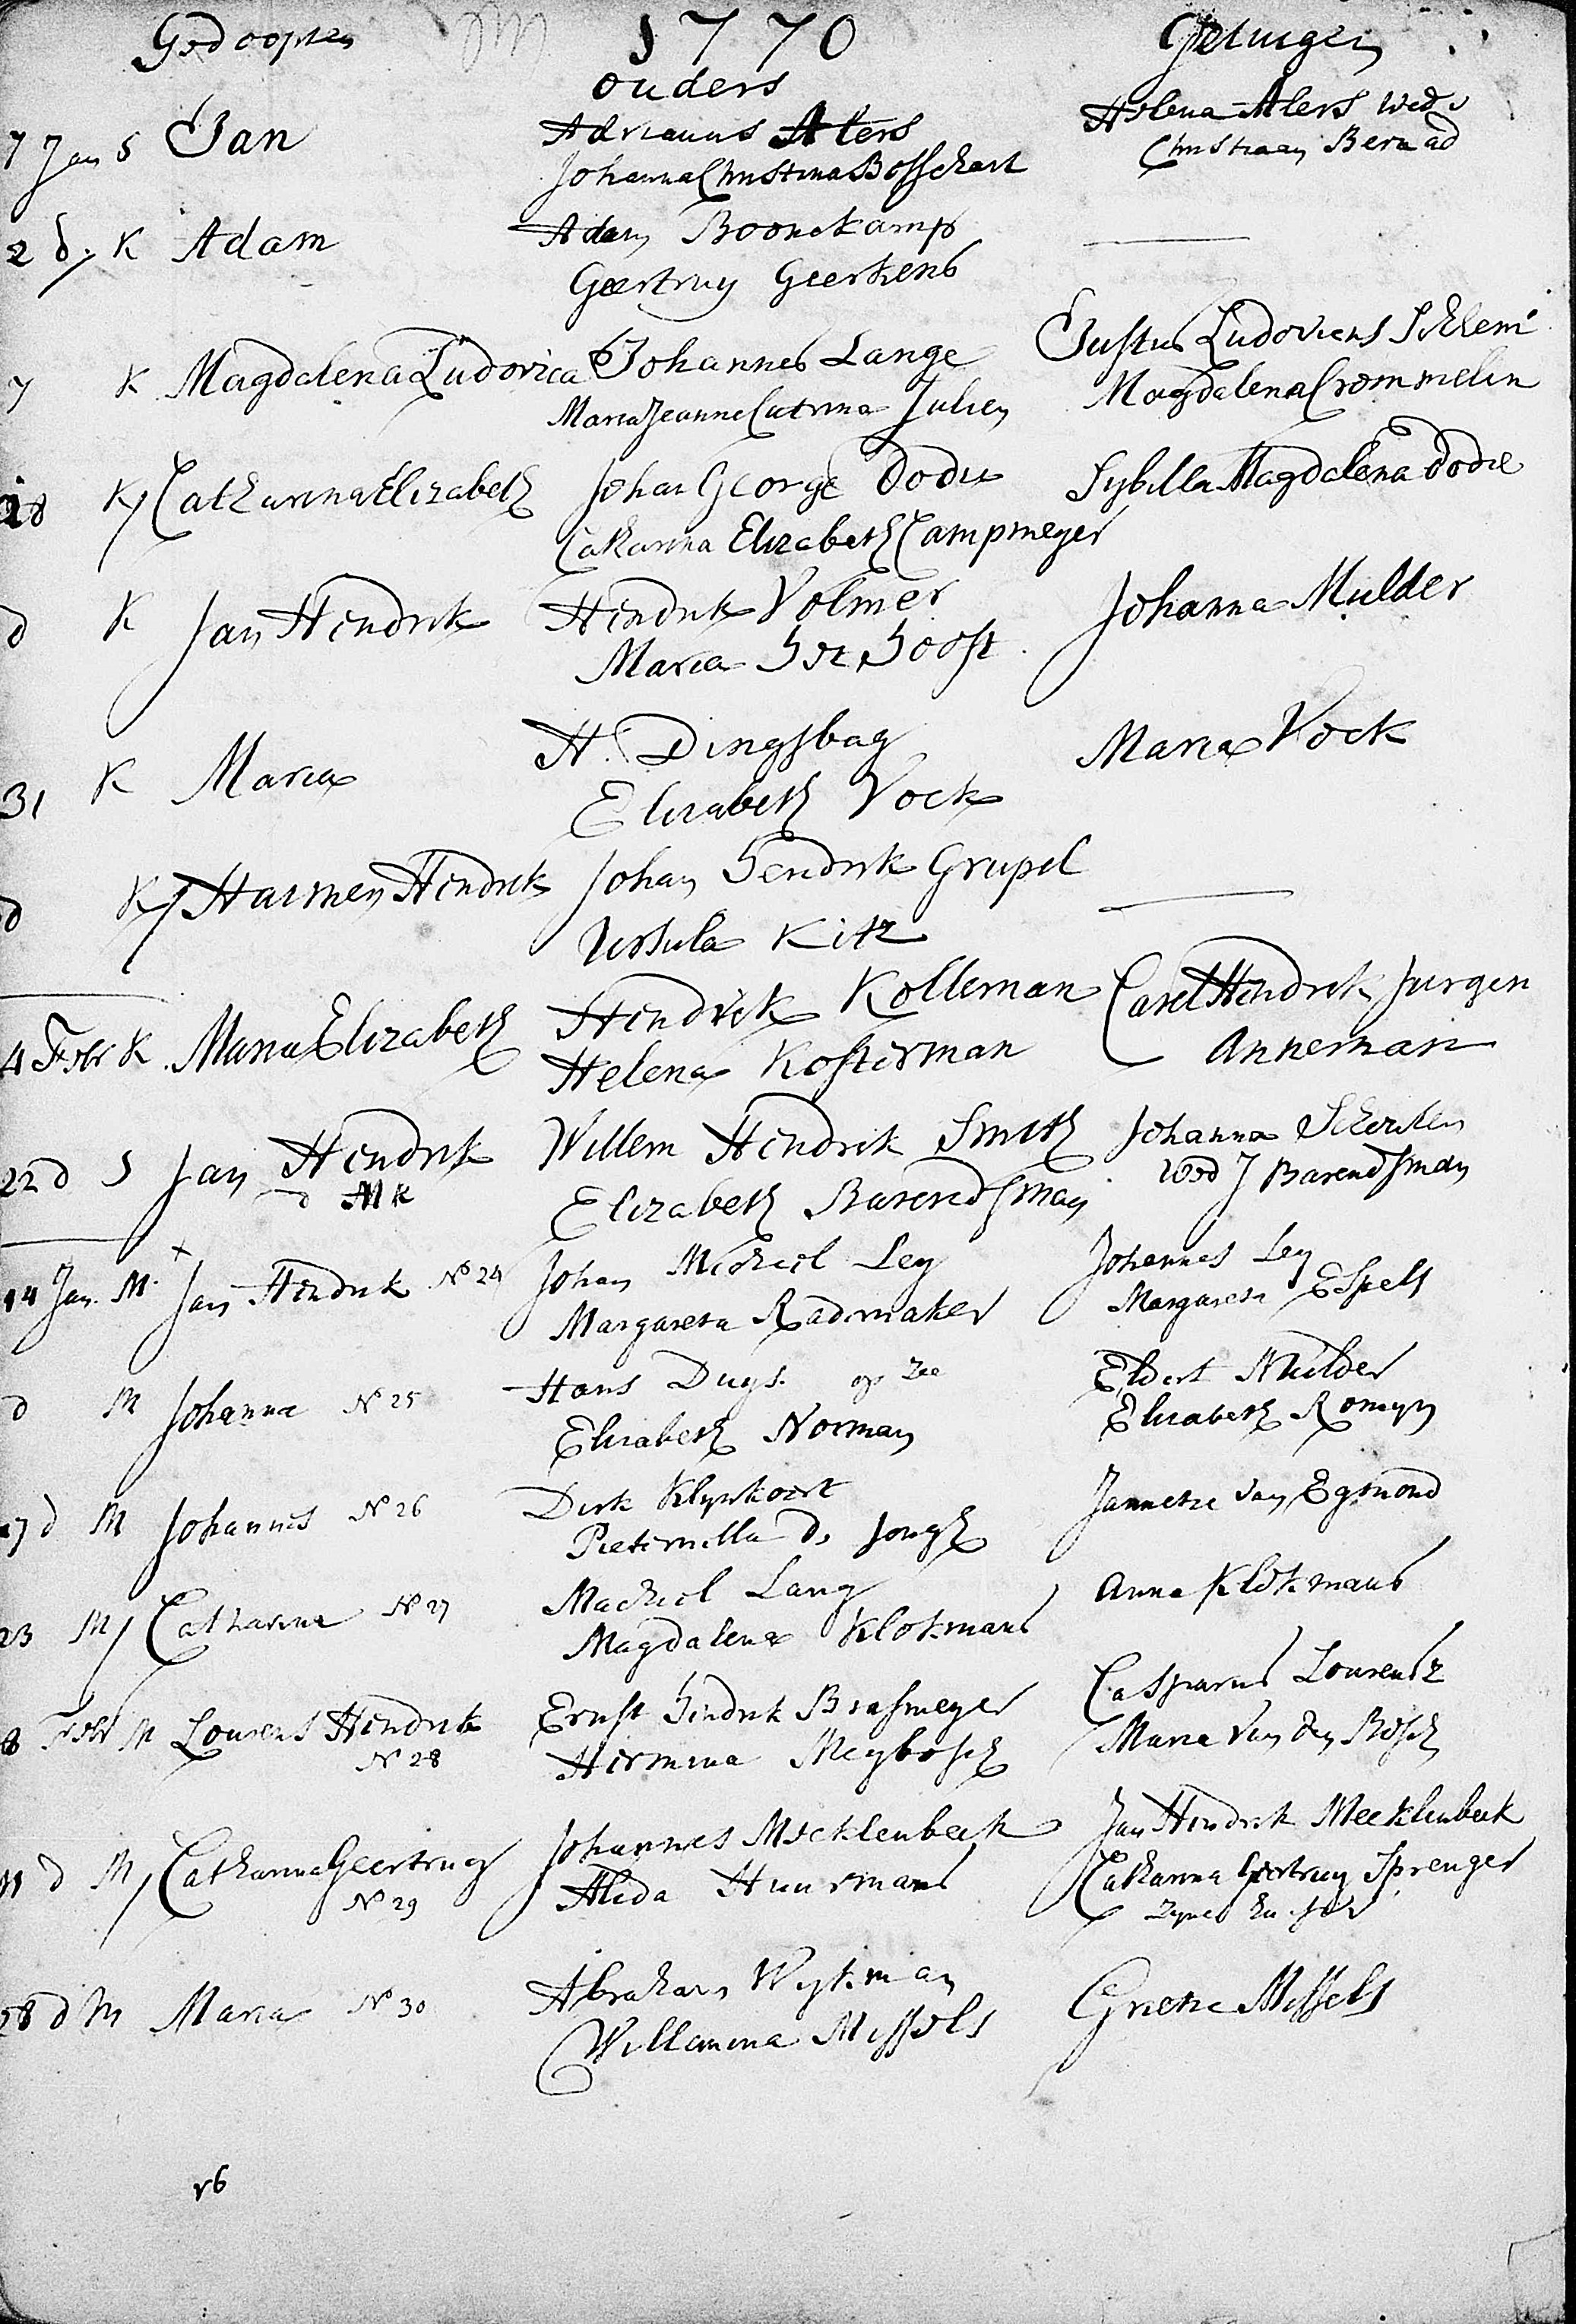 Gedoopten 1770 Getuigen
ouders
7 Jan S Jan Adrianus Alers Helena Alers Wed.
Johanna Christina Bosschart Christiaan Bernad
2 d. K Adam Adam Boonekamp
Geertruy Geerkens
7 K Magdalena Ludovica Johannes Lange Justus Ludovicus
Maria Jeanne Catrina Julien Magdalena Crommelin
K Catharina Elizabeth Johan George Dodie Sybilla Magdalena Dodie
Catharina Elizabeth Campmeyer
d K Jan Hendrik Hendrik Volmer Johanna Mulder
Maria
31 K Maria H. Dingsbag Maria Vock
Elizabeth Vock
d K Harmen Hendrik Johan Hendrik Grupel
Ursula Kitz
4 Febr K Maria Elizabeth Hendrik Kolleman Carel Hendrik Jurgen
Helena Kosterman Anneman
22 d S Jan Hendrik Willem Hendrik Smith Johanna
d Mk Elizabeth Barendsman Wed J Barendsman
14 Jan. M. Jan Hendrik No 24 Johan Michiel Ley Johannes Ley
Margareta Rademaker Margareta Espels
d M Johanna No 25 Hans Duys. op Zee Eldert Mulder
Elizabeth Norman Elizabeth Romyn
17 d M Johannes No 26 Dirk Klynkoort Jannetie van Egmond
Pieternella de Jongh
23 M Catharina No 27 Machiel Lang Anna Klokmans
Magdalena Klokmans
Febr M Lourens Hendrik Ernst Hendrik Brasmeyer Casparus Lourensz
No 28 Hermina Meybosch Maria Van den Bosch
11 d M Catharina Geertruy Johannes Mecklenbeek Jan Hendrik Mecklenbeek
No 29 Alida Huurmans Catharina Geertruy Sprenger
Zyne
28 d M Maria No 30 Abraham Wykman Grietie Missels
Willemina Missels